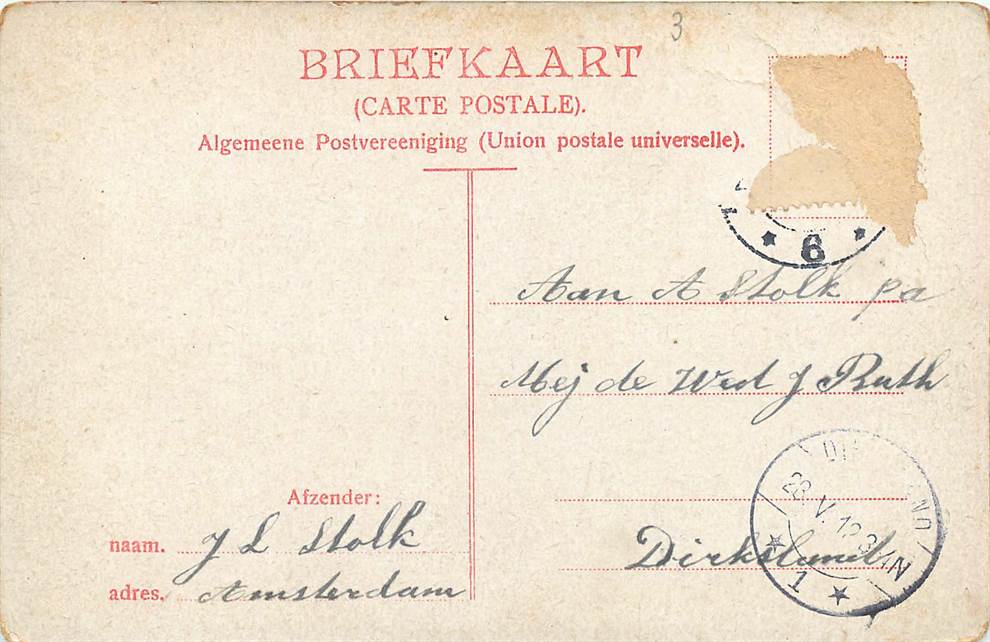 3
BRIEFKAART
(CARTE POSTALE).
Algemeene Postvereeniging (Union postale universelle).
6
Aan A Stolk pa
Mej de Wed J Ruth
Dirksland
1
Afzender:
naam. J L Stolk
adres. Amsterdam